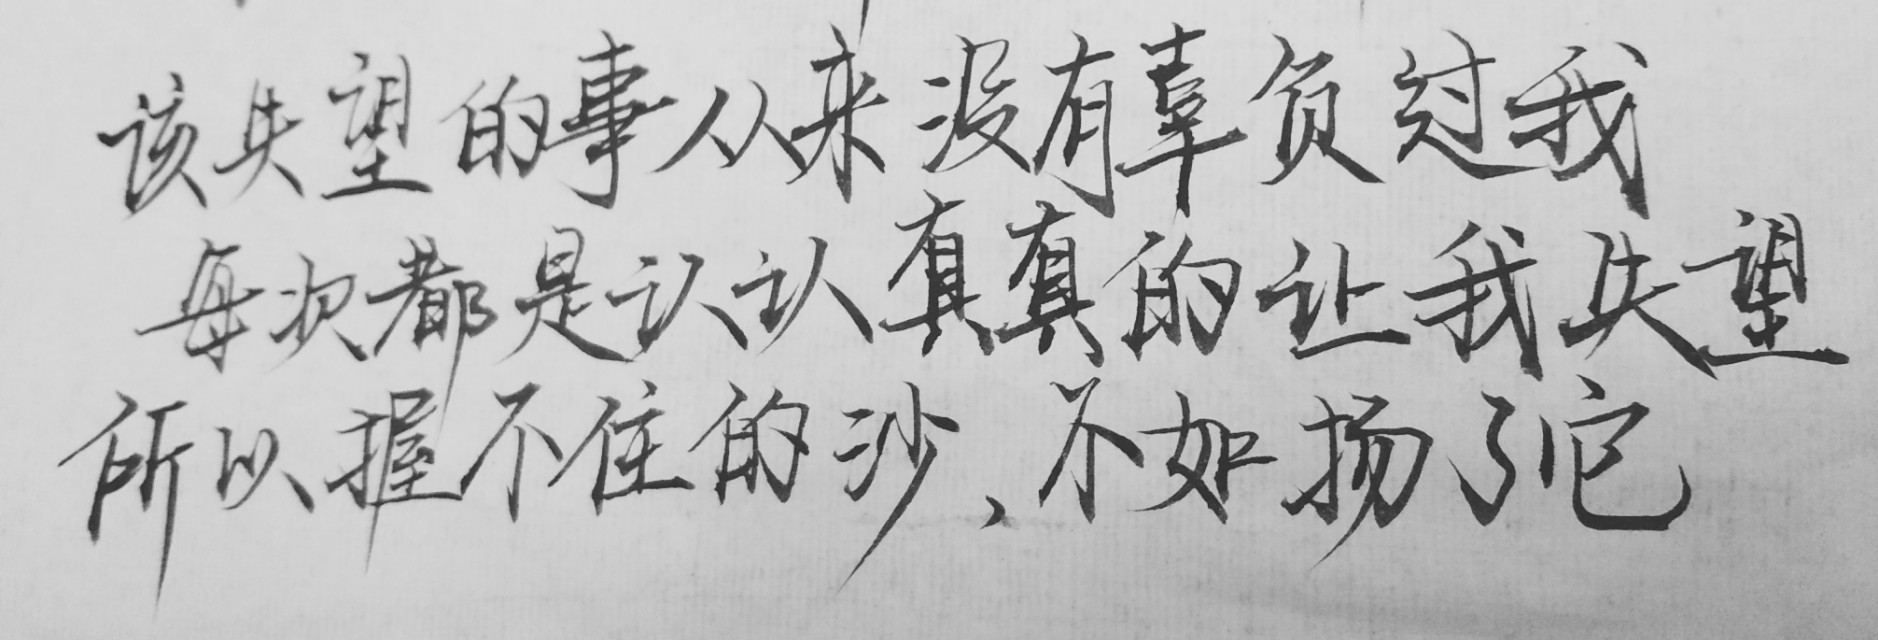 该失望的事从来没有辜负过我
每次都是认认真真的让我失望
所以握不住的沙、不如扬了它